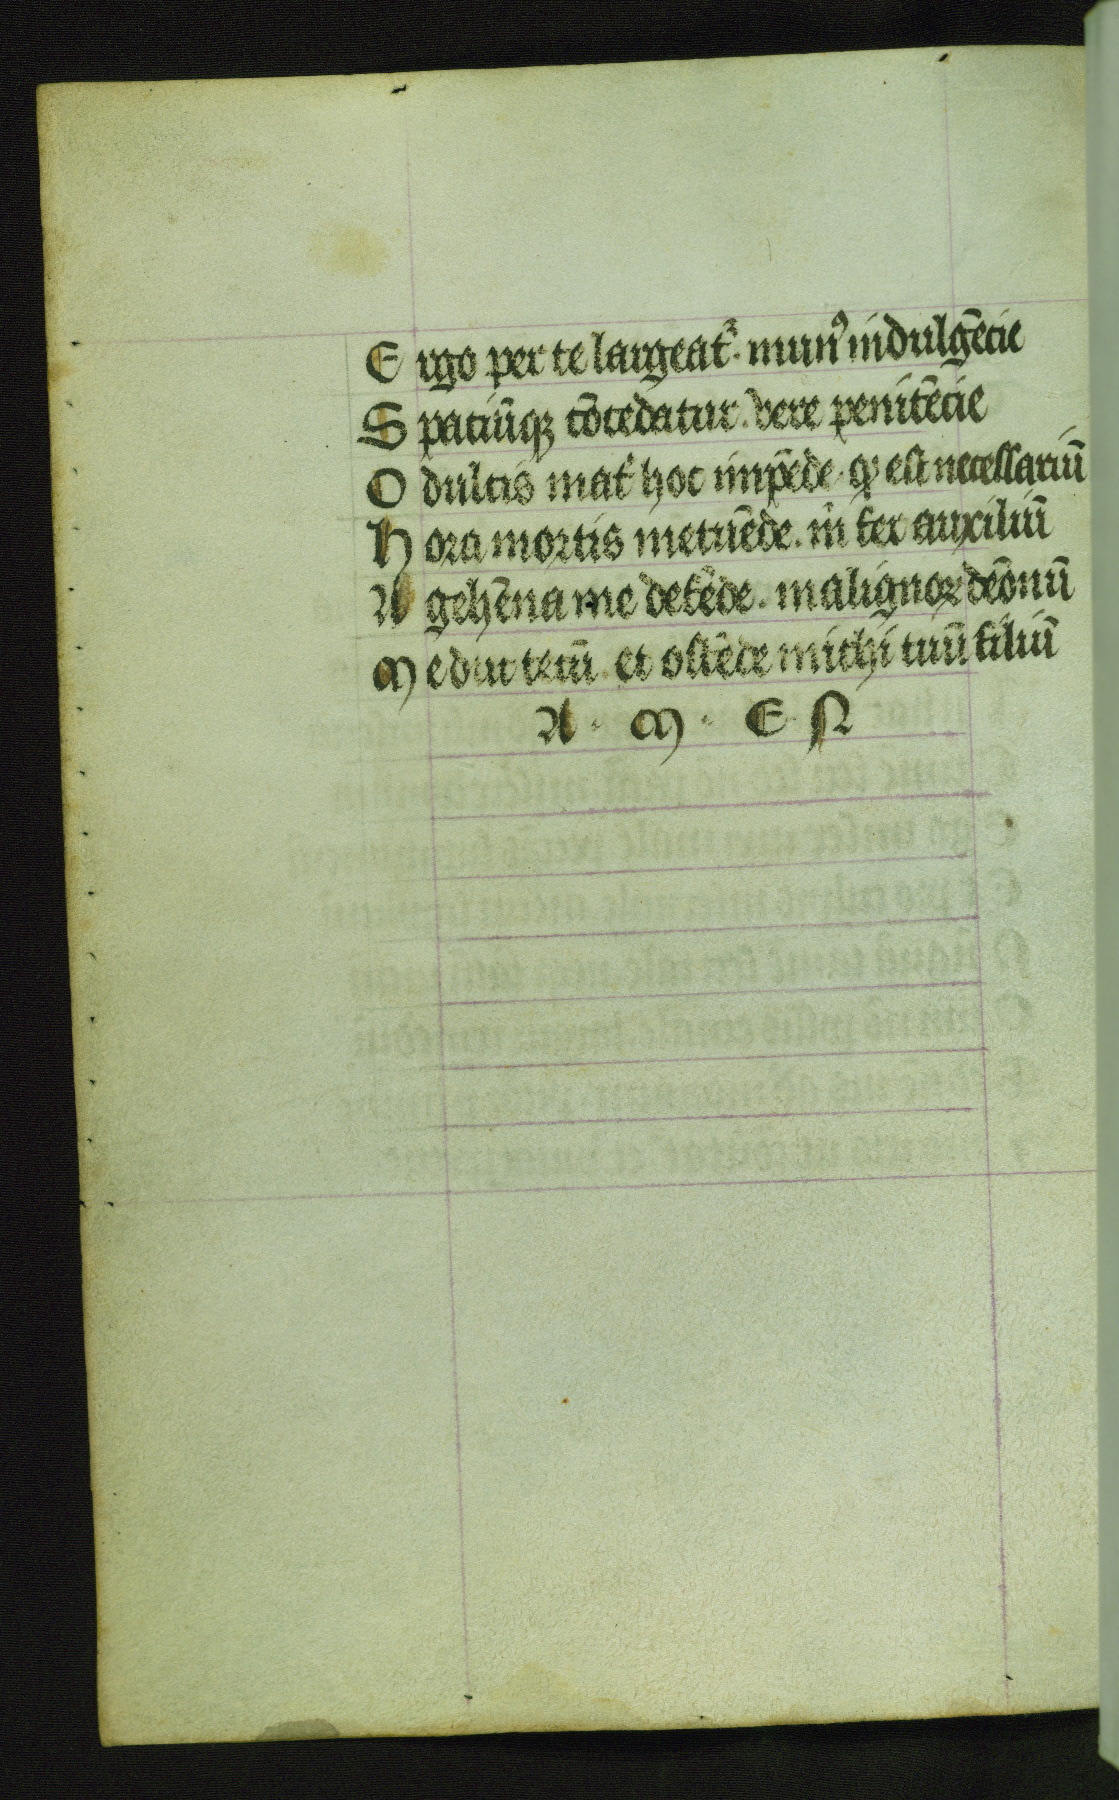 Ergo per te largeat᷑. mun᷒ indulgēcie
Spaciūqꝫ cōcedatur. vere penitēcie
O dulcis mat̄ hoc impēde. qꝫ est necessariū
Hora mortis metuēde. m̄ fer auxiliū
A gehēna me defēde. malignoꝝ deōnū
Me duc tecū. et ostēde michi tuū filiū
A · M · E · N